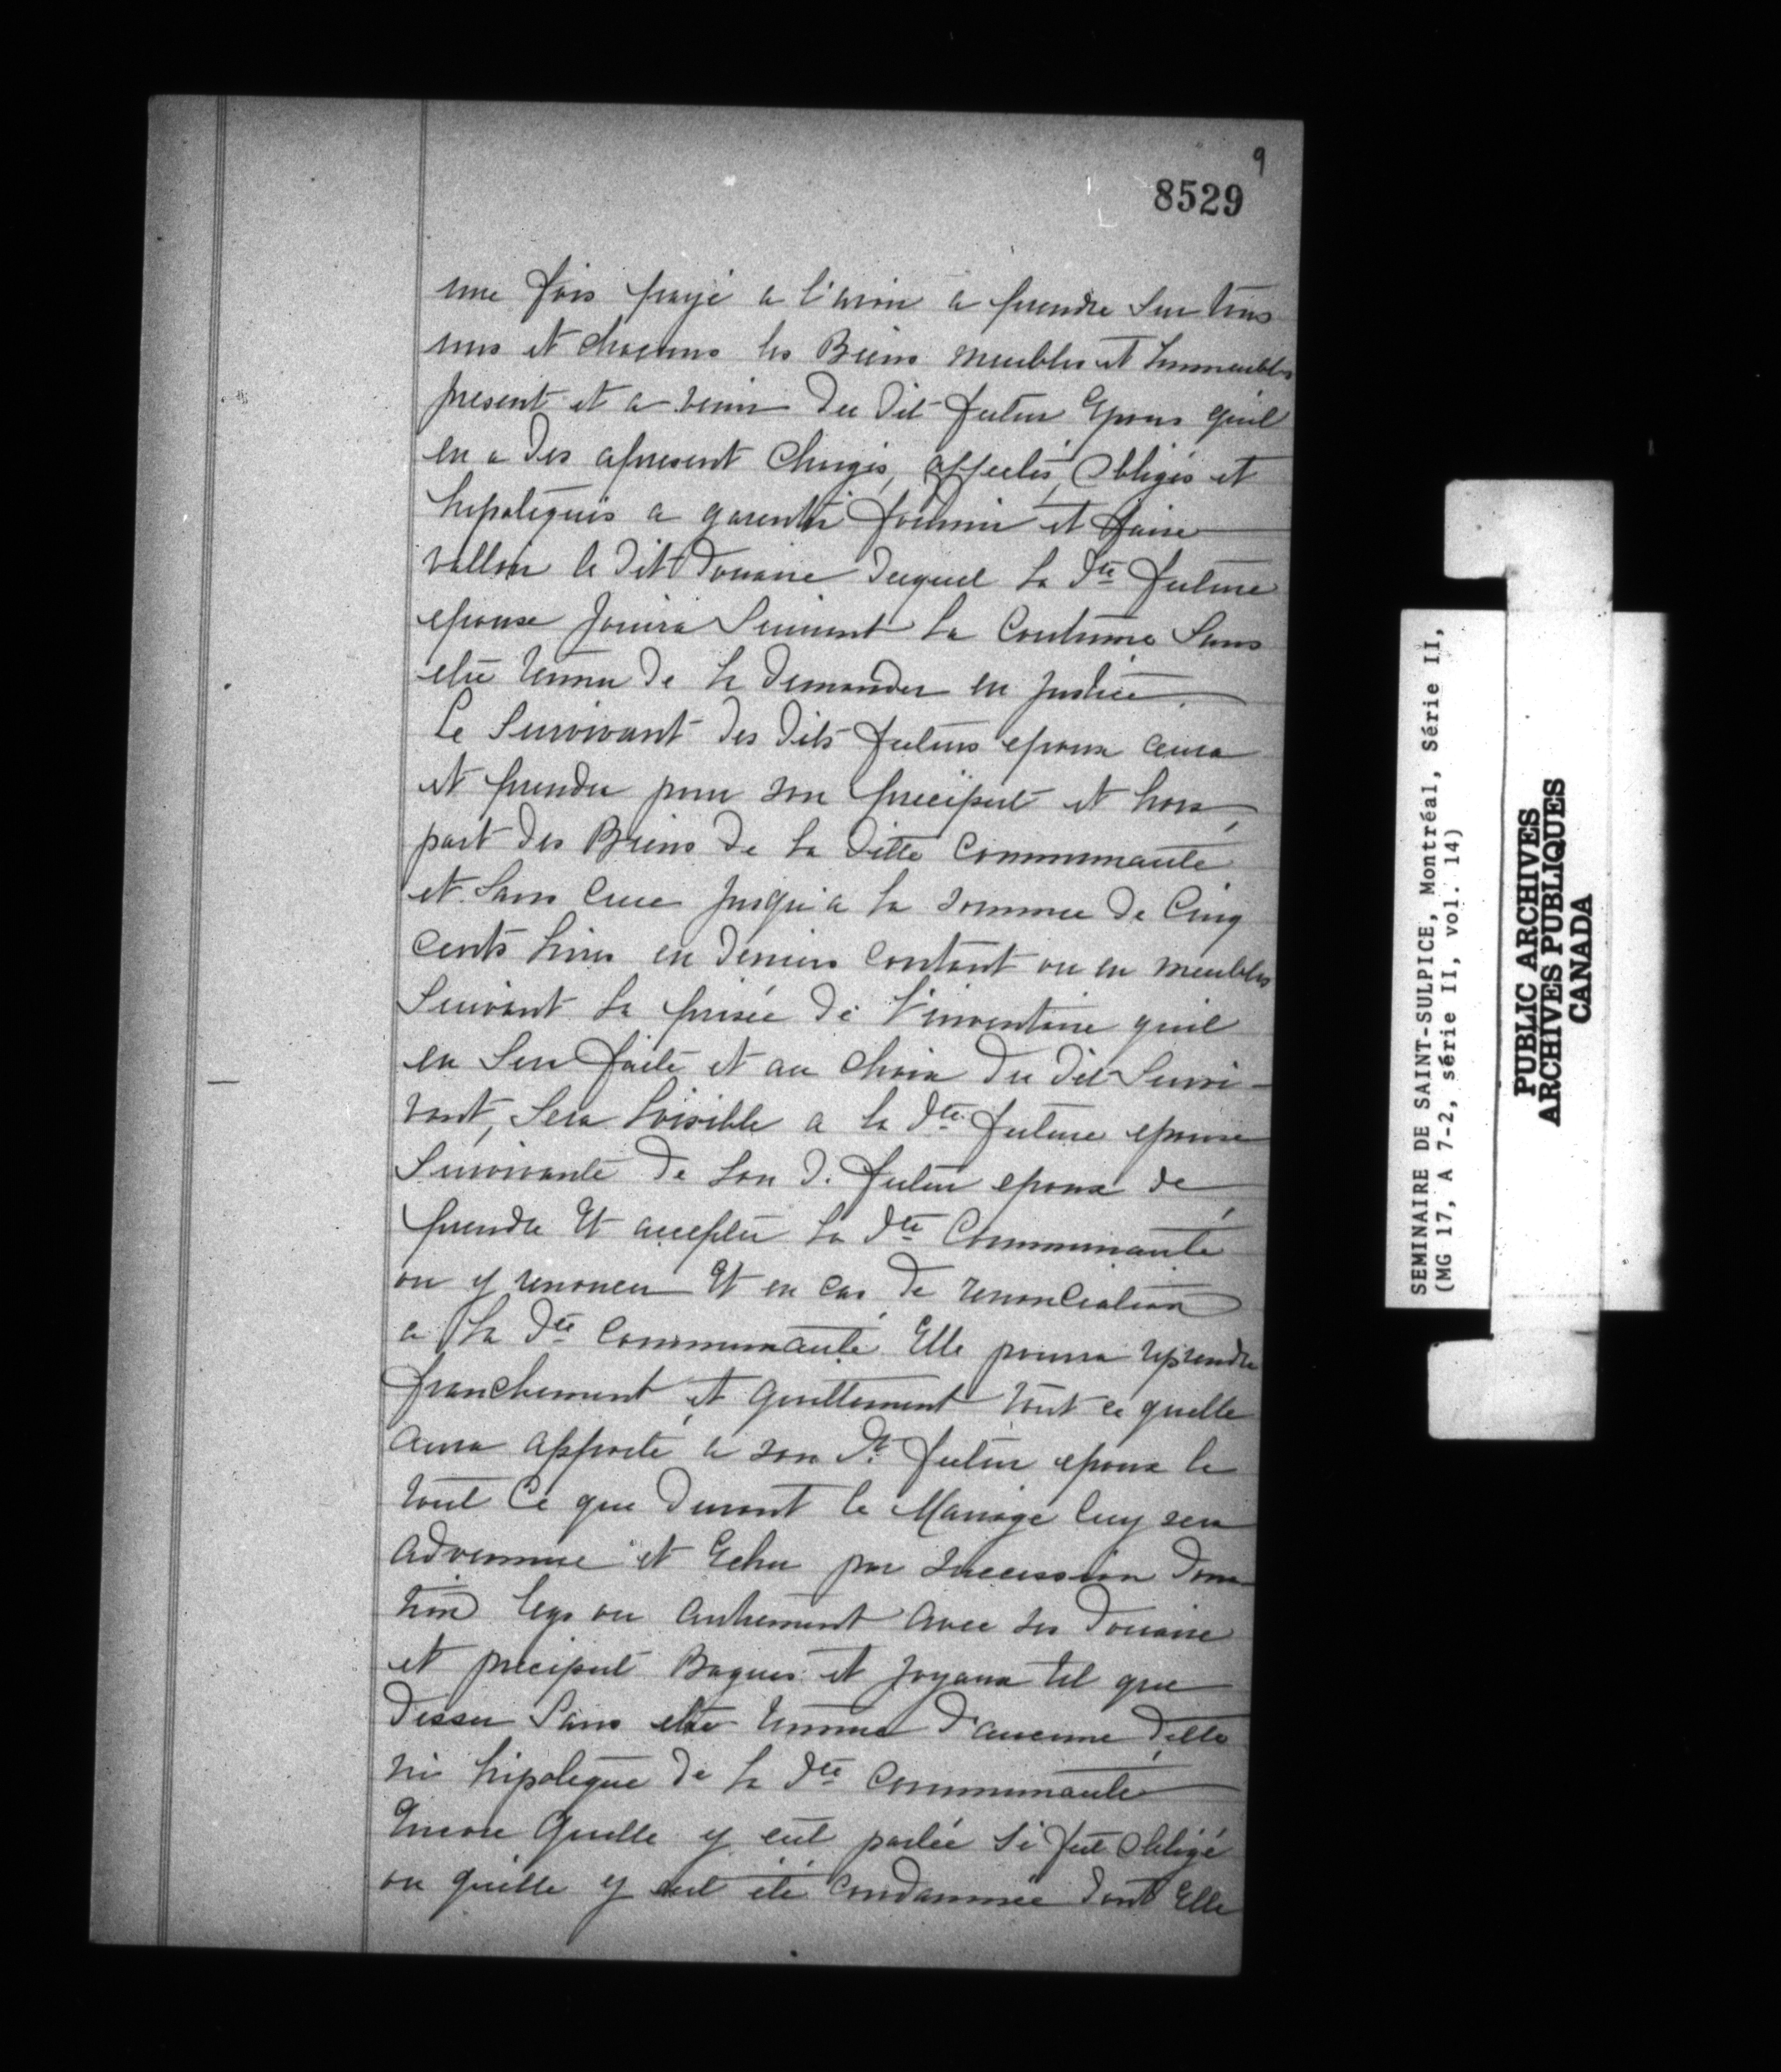 9
8529
une fois payé a l'avoir a prendre Sur tous
uns et chacuns les Biens meubles et Immeubles
present et a venir du dit futur Epoux quil
en a des apresent chargés, affectés, obligés et
hipotequés a garentir fournir et faire
valloir le dit Douaire duquel la dte future
epouse Jouira Suivant la Coutume Sans
etre tenue de le demander en Justice.
Le Survivant des dits futurs epoux aura
et prendra pour son preciput et hors
part des Biens de la ditte Communauté
et Sans Crue Jusqu'a la somme de Cinq
cents livres en deniers contant ou en meubles
Suivant la prisée de l'inventaire quil
en Sera faite et au choix du dit Survi-
vant, Sera loisible a la dte future epouse
Survivante de son d. futur epoux de
prendre Et accepter la dte Communauté
ou y renoncer Et en cas de renonciation
a la dte Communauté Elle pourra reprendre
franchement et quittement tout ce quelle
aura apporté a son dt futur epoux le
tout Ce que durant le Mariage luy sera
advennue et Echu par succession dona-
tion legs ou autrement avec ses Douaire
et preciput Bagues et Joyaux tel que
dessu Sans etre tennue d'aucune dette
ni hipoteque de la dte Communauté
Encore Quelle y eut parlée Si fut obligé
ou quelle y eut été Condamnée dont Elle
SEMINAIRE DE SAINT-SULPICE, Montréal, Série II,
(MG 17, A 7-2, série II, vol. 14)
PUBLIC ARCHIVES
ARCHIVES PUBLIQUES
CANADA